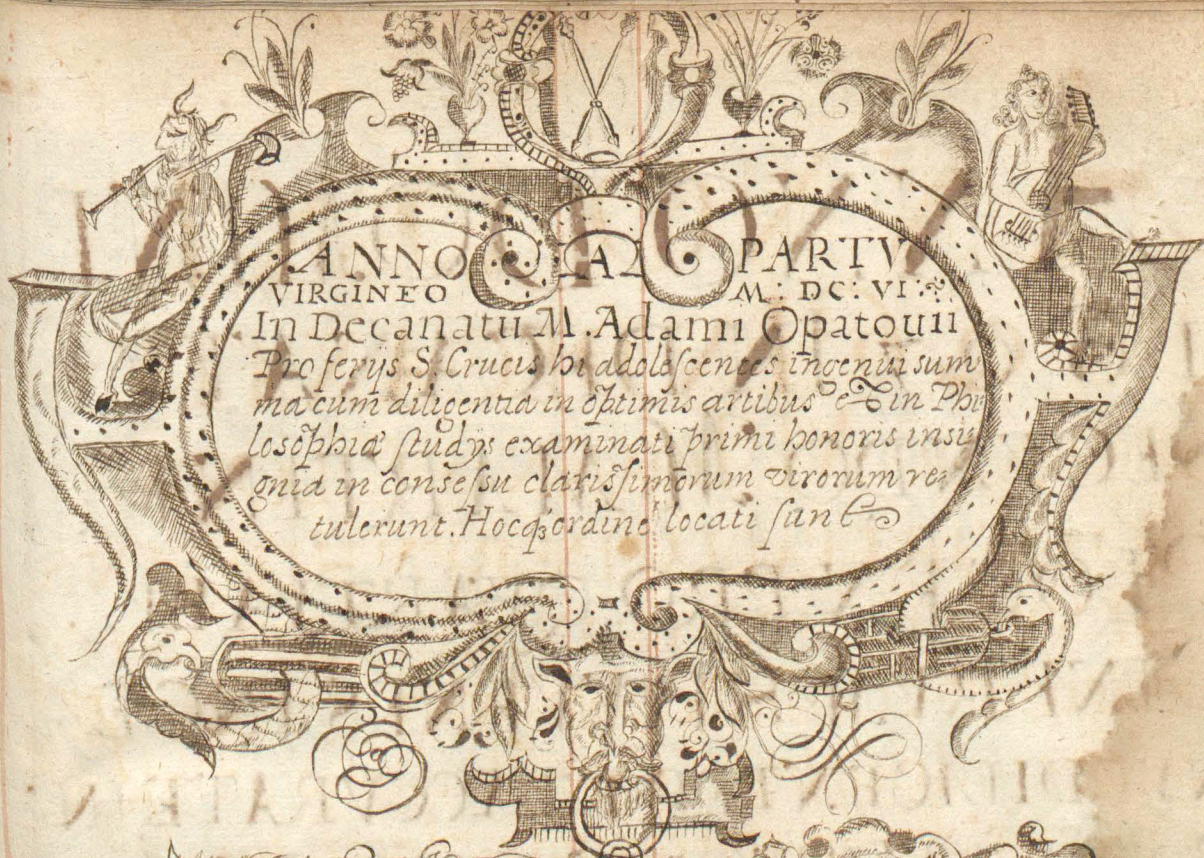 ANNO A PARTV
VIRGINEO M: DC: VI:
In Decanatu M. Adami Opatouii
Pro ferijs S. Crucis hi adolescentes ingenui sum
ma cum diligentia in optimis artibus et in Phi
losophiæ studijs examinati primi honoris insi
gnia in consessu clarissimorum virorum re
tulerunt. Hocq; ordine locati sunt